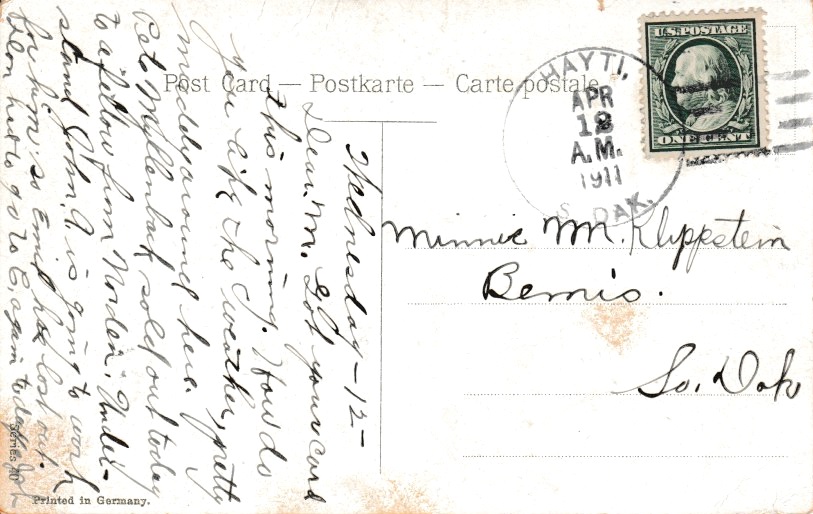 Post Card — Postkarte — Carte postale
U.S. POSTAGE
ONE CENT
HAYTI,
APR
12
A.M.
1911
S. DAK.
Wednesday - 12 -
Dear M. Got your card
this morning. How do
you like the weather, pretty
muddy around here.
Pete sold out today
to a fellow from Norden. Under-
stand John A. is going to work
for him so Emil has lost out.
had to go to E. again today
Minnie M. Klippstein
Bemis.
So. Dak
Series
Printed in Germany.